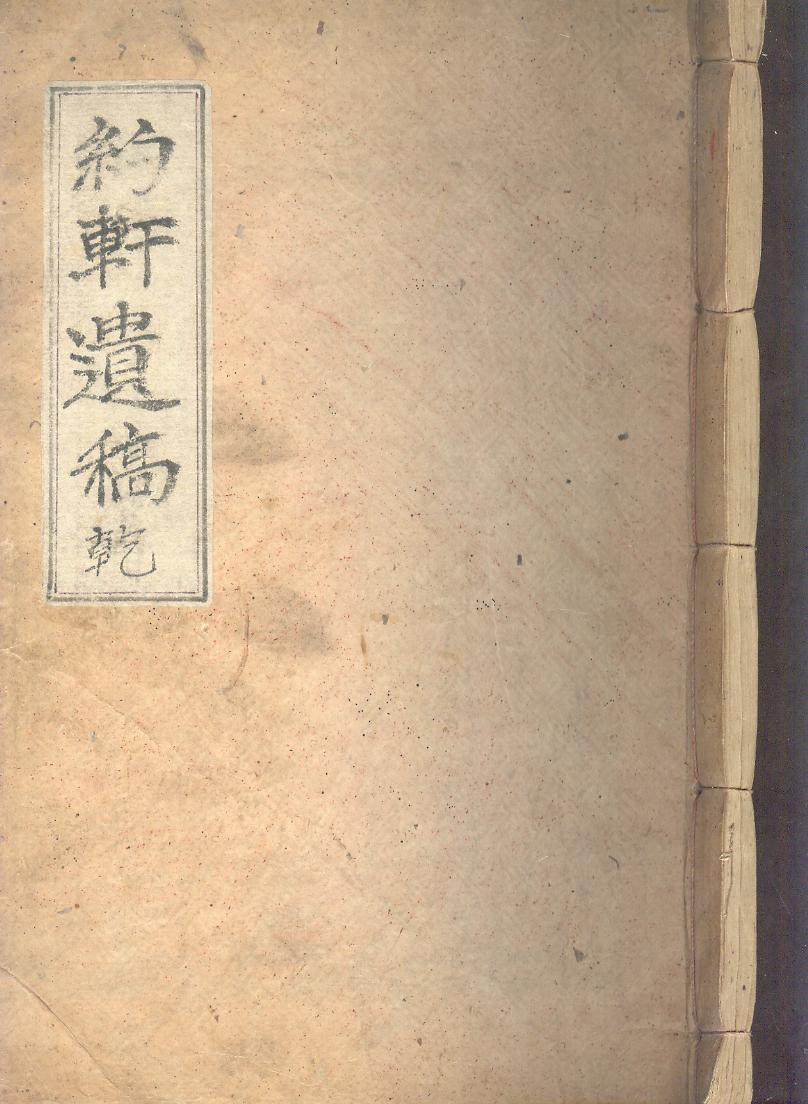 約軒遺稿 乾